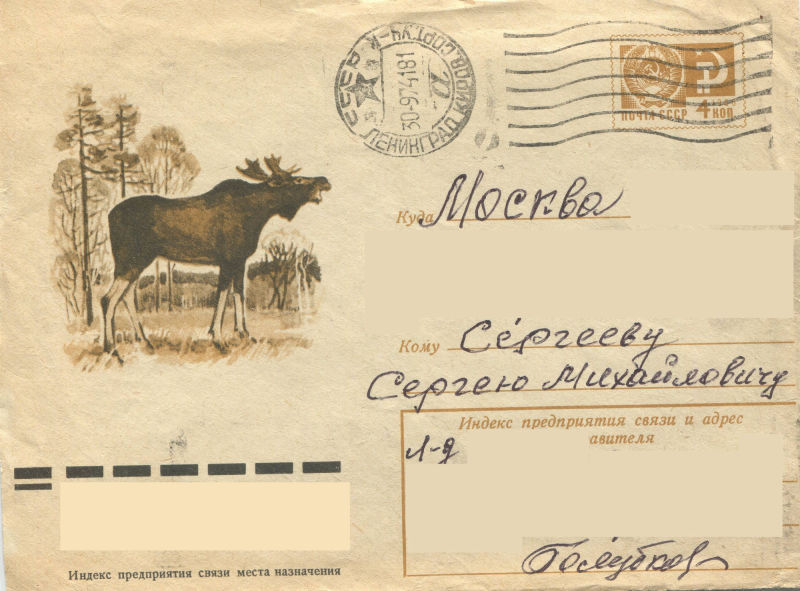 ЛЕНИНГРАД КИРОВ.СОРТ.УЧ-К
30-974181
ПОЧТА СССР
4 КОП
Куда Москва
Кому Сергееву
Сергею Михайловичу
Индекс предприятия связи и адрес
авителя
Л-д
Индекс предприятия связи места назначения